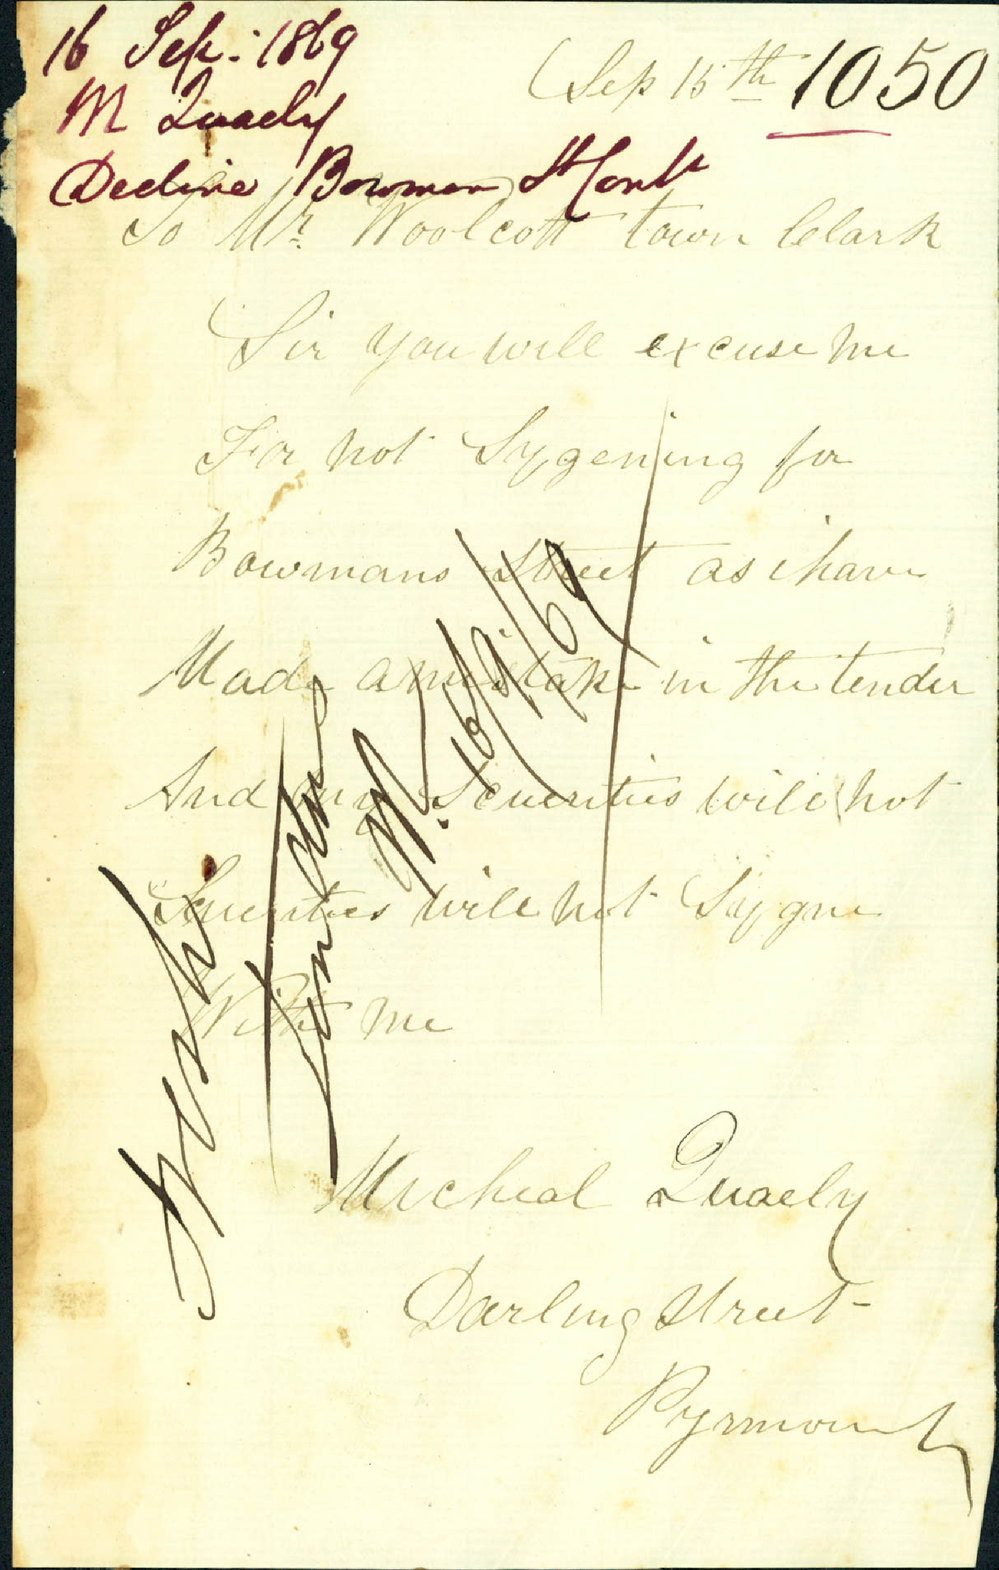 16 Sep: 1869
M Quaely
Decline Bowman St Cont
Sep 15th 1050
To Mr. Woolcott town Clark
Sir you will excuse me
For not Sygening for
Bowmans Street as i have
Made a mistake in the tender
And my Scuerities will not
Scuerities will not Sygne
With me
Micheal Quaely
Darling Street
Pyrmont
16/9/69